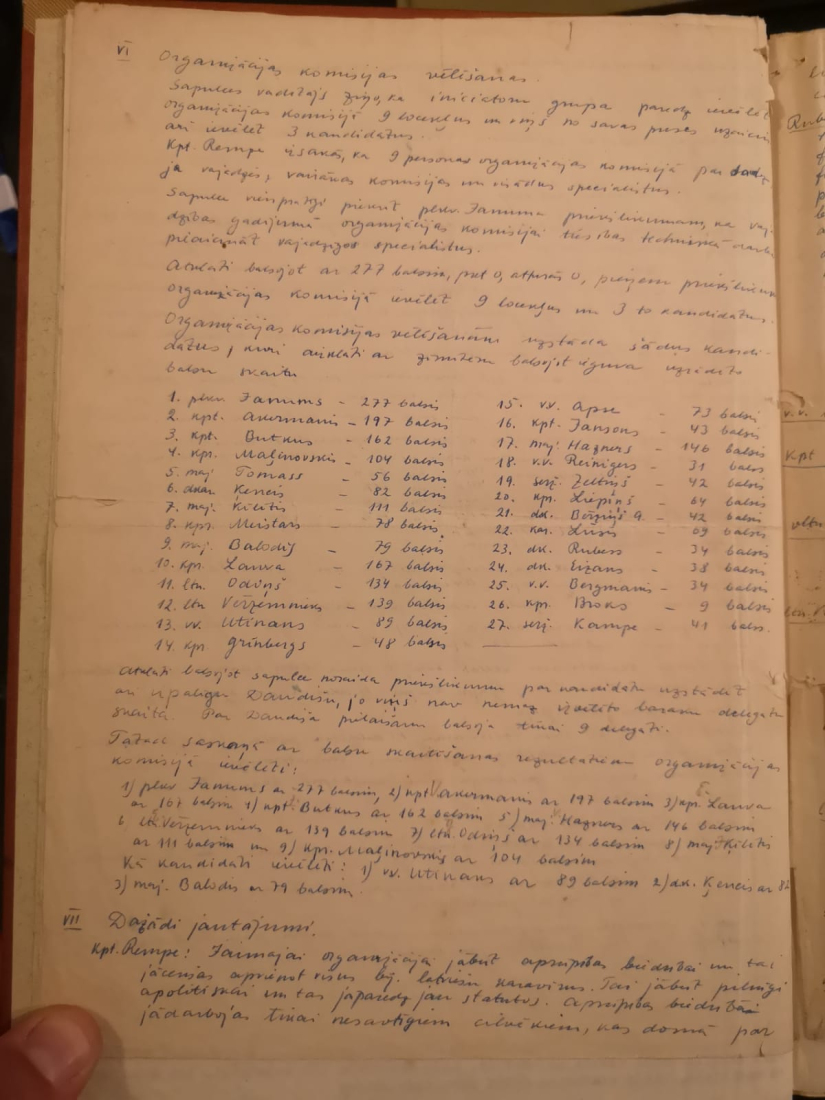 VI Organizācijas komisijas vēlēšanas.
Sapulces vadītājs ziņo, ka iniciatoru grupa paredz ievēlēt
organizācijas komisijā 9 locekļus un viņš no savas puses
arī ievēlēt 3 kandidātus.
Kpt. Rempe izsakās, ka 9 personas organizācijas komisijā par daudz
ja vajadzēs, varēs komisijas un citādus specialistus.
Sapulce vienprātīgi piekrīt plkv. Januma priekšlikumam, ka vaja-
dzības gadījumā organizācijas komisijai tiesības techniskā darbā
pieaicināt vajadzīgos specialistus.
Atklāti balsojot ar 277 balsīm, pret 0, atturas 0, pieņem priekšlikumu
organizācijas komisijā ievēlēt 9 locekļus un 3 to kandidātus.
Organizācijas komisijas vēlēšanām uzstāda šādus kandi-
dātus, kuri atklāti ar zīmītēm balsojot ieguva uzrādīto
balsu skaitu
1. plkv. Janums - 277 balsis
2. kpt. Akermanis - 197 balsis
3. kpt. Butkus - 162 balsis
4. kpt. Maļinovskis - 104 balsis
5. maj Tomass - 56 balsis
6. dkar. Ķencis - 82 balsis
7. maj. Ķīlītis - 111 balsis
8. kpt. Meistars - 78 balsis
9. maj. Balodis - 79 balsis
10. kpt. Lauva - 167 balsis
11. ltn. Odiņš - 134 balsis
12. ltn Vērzemnieks - 139 balsis
13. vv. Utināns - 89 balsis
14. kpt. Grīnbergs - 48 balsis
15. vv. Apse - 73 balsis
16. kpt. Jansons - 43 balsis
17. maj. Hāzners - 146 balsis
18. v.v. Reinigers - 31 balss
19. serž. Zeltiņš - 42 balsis
20. kpr. Liepiņš - 64 balsis
21. dk. Bērziņš G. - 42 balsis
22. kar. Lūsis - 69 balsis
23. dk. Rubess - 34 balsis
24. dk. Eizāns - 38 balsis
25. v.v. Bergmanis - 34 balsis
26. kpr. Broks - 9 balsis
27. serž. Kampe - 41 balss.
Atklāti balsojot sapulce noraida priekšlikumu par kandidātu uzstādīt
arī kpaligu Daudišu, jo viņš nav nemaz izvēlēto karavīru delegātu
skaitā. Par Daudiša pielaišanu balsoja tikai 9 delegāti.
Tātad saskaņā ar balsu skaitīšanas rezultātiem organizācijas
komisijā ievēlēti:
1) plkv Janums ar 277 balsīm, 2) kpt Akermanis ar 197 balsīm 3) kpt. Lauva
ar 167 balsīm 4) kpt. Butkus ar 162 balsīm 5) maj. Hāzners ar 146 balsīm
6 ltn Vērzemnieks ar 139 balsīm 7) ltn. Odiņš ar 134 balsīm 8) maj. Ķīlītis
ar 111 balsīm un 9) kpt. Maļinovskis ar 104 balsīm
Kā kandidāti ievēlēti: 1) vv. Utināns ar 89 balsīm 2) dk. Ķencis ar 82
3) maj. Balodis ar 79 balsīm.
VII Dažādi jautājumi.
Kpt. Rempe: Jaunajai organizācijai jābūt apsardzības biedrībai un tai
jācenšas apvienot visus bij. latviešu karavīrus. Tai jābūt pilnīgi
apolitiskai un tas jāparedz jau statutos. biedrībā
jādarbojas tikai nesavtīgiem cilvēkiem, kas domā par